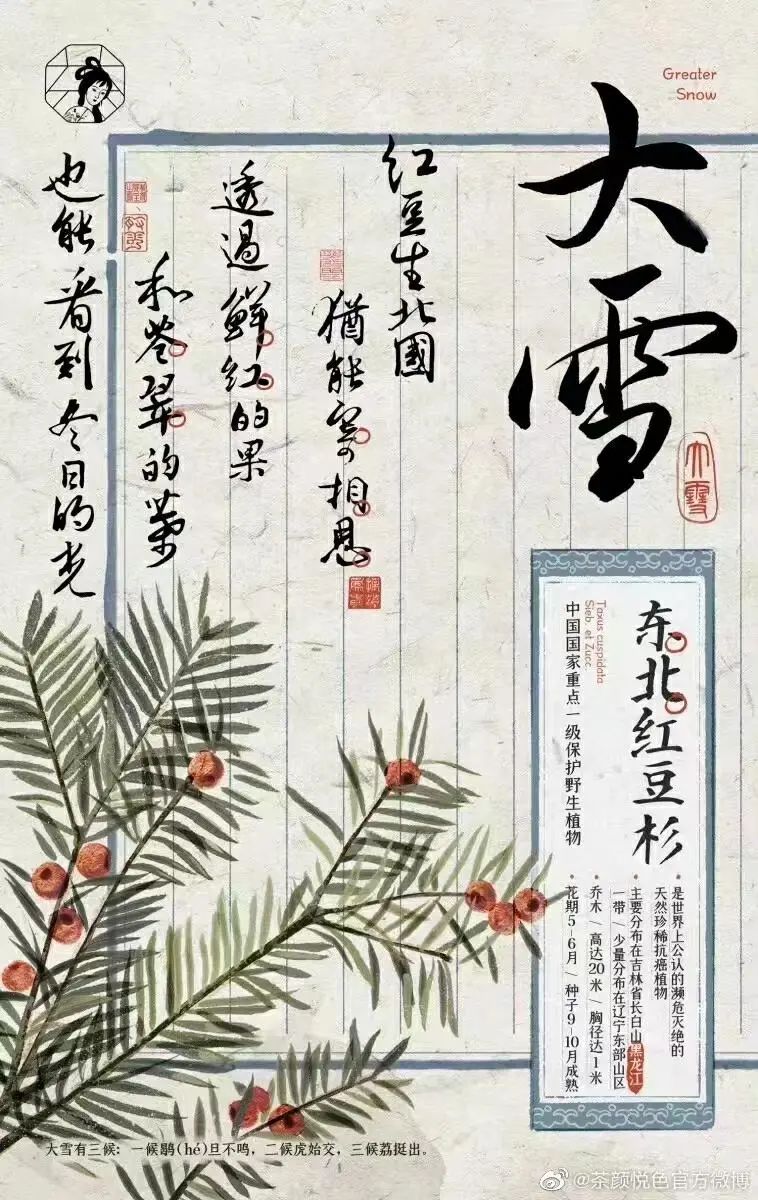 Greater
Snow
大雪
大雪
红豆生北國
猶能寄相思
透過鲜红的果
和苍翠的葉
也能看到冬日的光
东北红豆杉
Taxus cuspidata
Sieb. et Zucc.
中国国家重点一级保护野生植物
是世界上公认的濒危灭绝的
天然珍稀抗癌植物
主要分布在吉林省长白山黑龙江
一带/少量分布在辽宁东部山区
乔木/高达20米/胸径达1米
花期5-6月/种子9-10月成熟
大雪有三候：一候鹖(hé)旦不鸣，二候虎始交，三候荔挺出。
@茶颜悦色官方微博